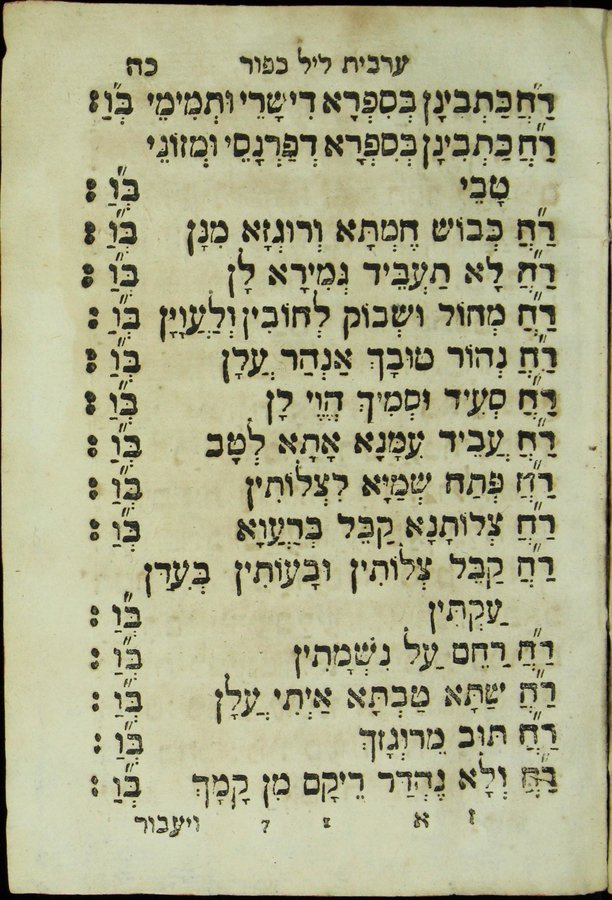 ערבית ליל כפור כה
רַ֞חֲ כַּתְבִינָן בְּסִפְרָא דִי שָׁרֵי וּתְמִימֵי בְּ֞וַ :
רַ֞חֲ כַּתְבִינָן בְּסִפְרָא דְפַרְנָסֵי וּמְזוֹנֵי
טָבֵי בְּ֞וַ :
רַ֞חֲ כְּבוֹשׁ חֶמְתָּא וְרוּגְזָא מִנָּן בְּ֞וַ :
רַ֞חֲ לָא תַעְבֵּיד גְּמִירָא לָן בְּ֞וַ :
רַ֞חֲ מְחוֹל וּשְׁבוֹק לְחוֹבִין וְלַעֲוָיָן בְּ֞וַ :
רַ֞חֲ נְהוֹר טוּבָךְ אַנְהַר עֲלָן בְּ֞וַ :
רַ֞חֲ סְעִיד וּסְמִיךְ הֱוֵי לָן בְּ֞וַ :
רַ֞חֲ עֲבִיד עִמָּנָא אָתָא לְטָב בְּ֞וַ :
רַ֞חֲ פְּתַח שְׁמַיָּא לִצְלוֹתִין בְּ֞וַ :
רַ֞חֲ צְלוֹתָנָא קַבֵּל בְּרַעֲוָא בְּ֞וַ :
רַ֞חֲ קַבֵּל צְלוֹתִין וּבָעוֹתִין בְּעִדָּן
עַקְתִּין בְּ֞וַ :
רַ֞חֲ רַחֵם עַל נִשְׁמָתִין בְּ֞וַ :
רַ֞חֲ שַׁתָּא טַבְתָא אַיְתִי עֲלָן בְּ֞וַ :
רַ֞חֲ תּוּב מֵרוּגְזָךְ בְּ֞וַ :
רַ֞חֲ וְלָא נֶהְדַּר רֵיקָם מִן קָמָךְ בְּ֞וַ :
ז א ויעבור